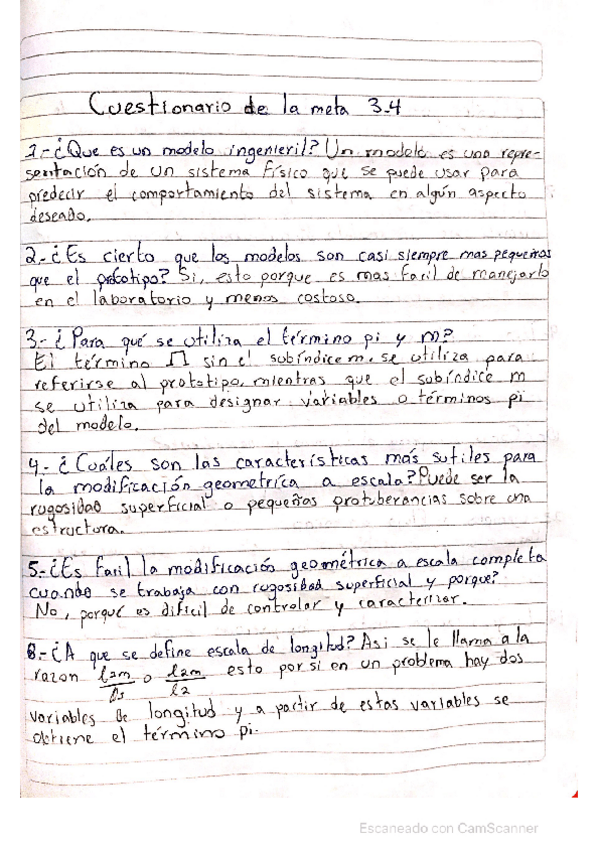 Cuestionario de la meta 3.4
1.-¿Que es un modelo ingenieril? Un modelo es una repre-
sentación de un sistema físico que se puede usar para
predecir el comportamiento del sistema en algún aspecto
deseado.
2.-¿Es cierto que los modelos son casi siempre mas pequeños
que el prototipo? Si, esto porque es mas facil de manejarlo
en el laboratorio y menos costoso.
3.-¿Para qué se utiliza el término pi y m?
El término Π sin el subíndice m, se utiliza para
referirse al prototipo, mientras que el subíndice m
se utiliza para designar variables o términos pi
del modelo.
4.-¿Cuáles son las características más sutiles para
la modificación geometrica a escala? Puede ser la
rugosidad superficial o pequeñas protuberancias sobre una
estructura.
5.-¿Es facil la modificación geométrica a escala completa
cuando se trabaja con rugosidad superficial y porque?
No, porque es dificil de controlar y caracterizar.
6.-¿A que se define escala de longitud? Asi se le llama a la
razon o l2m/l2 esto por si en un problema hay dos
variables de longitud y a partir de estas variables se
obtiene el término pi.
Escaneado con CamScanner